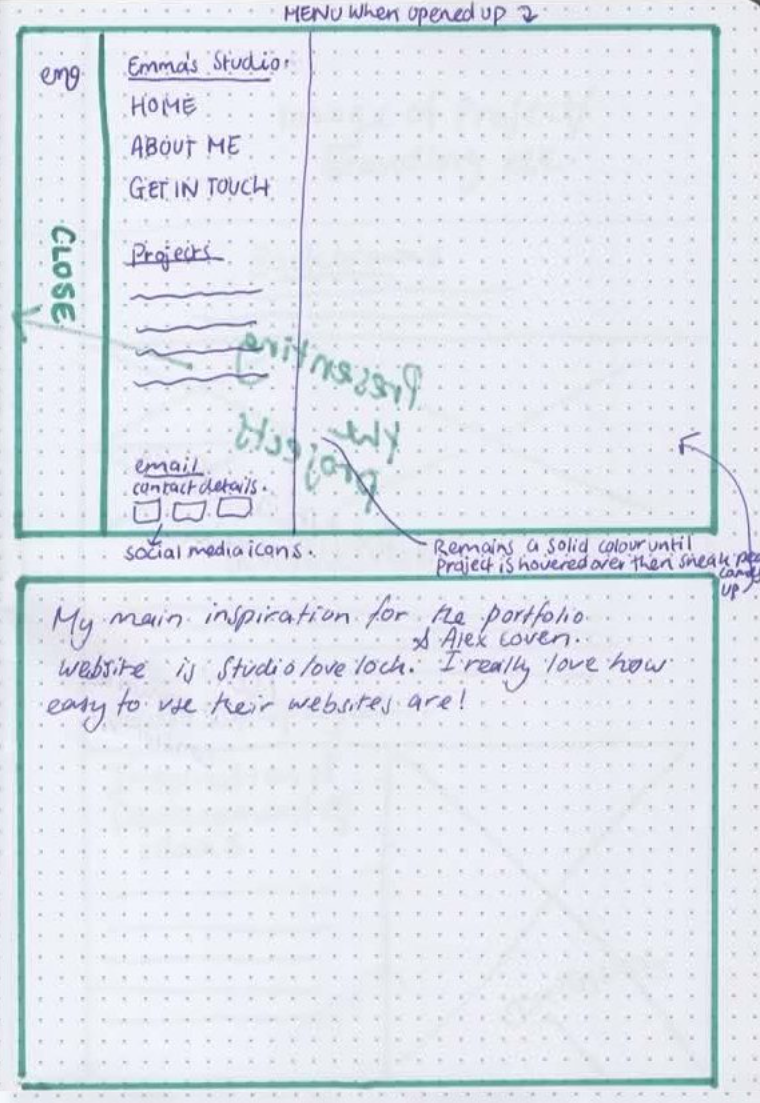 MENU when opened up
emg
Emma's Studio.
HOME
ABOUT ME
GET IN TOUCH
CLOSE
Projects
Presenting
the
projects
email
contact details.
social media icons.
Remains a solid colour until
project is hovered over then sneak
up
My main inspiration for the portfolio
& Alex Coven.
website is Studio love lock. I really love how
easy to use their websites are!